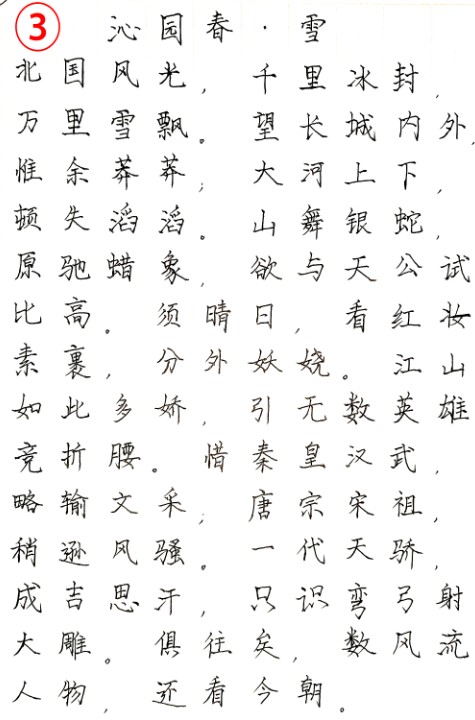 ③ 沁园春·雪
北国风光，千里冰封，
万里雪飘。望长城内外，
惟余莽莽；大河上下，
顿失滔滔。山舞银蛇，
原驰蜡象，欲与天公试
比高。须晴日，看红妆
素裹，分外妖娆。江山
如此多娇，引无数英雄
竞折腰。惜秦皇汉武，
略输文采；唐宗宋祖，
稍逊风骚。一代天骄，
成吉思汗，只识弯弓射
大雕。俱往矣，数风流
人物，还看今朝。